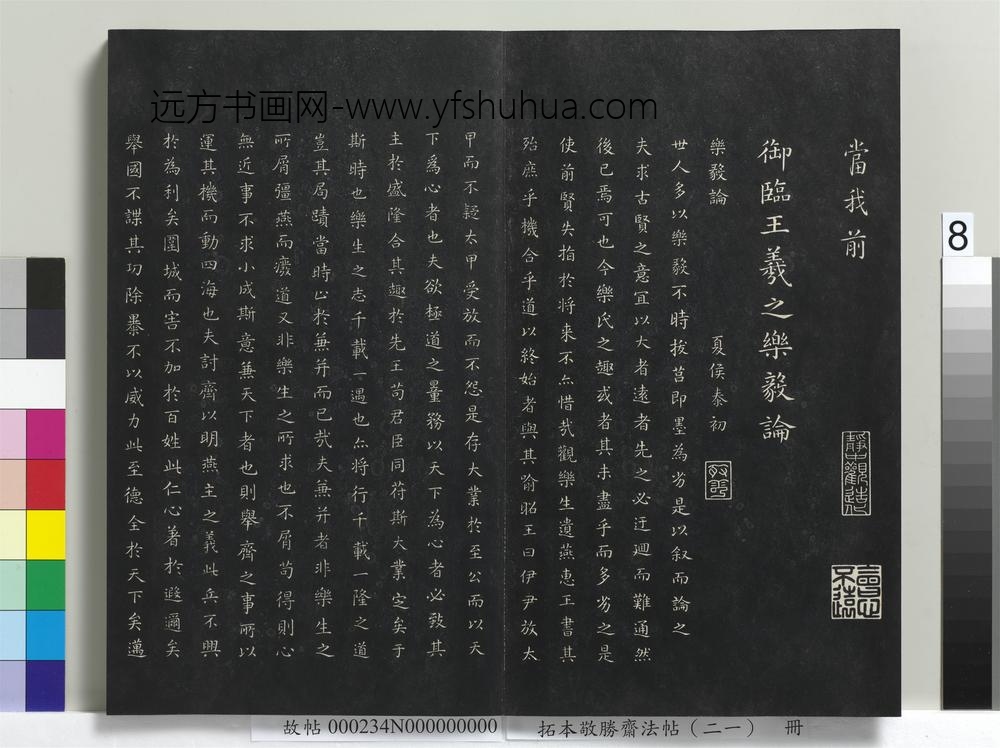 當我前
御臨王羲之樂毅論
樂毅論
夏侯泰初
世人多以樂毅不時拔莒即墨為劣是以叙而論之
夫求古賢之意宜以大者遠者先之必迂迴而難通然
後已焉可也今樂氏之趣或者其未盡乎而多劣之是
使前賢失指於將来不亦惜哉觀樂生遺燕惠王書其
殆庶乎機合乎道以終始者與其喻昭王曰伊尹放太
甲而不疑太甲受放而不怨是存大業於至公而以天
下為心者也夫欲極道之量務以天下為心者必致其
主於盛隆合其趣於先王苟君臣同符斯大業定矣于
斯時也樂生之志千載一遇也亦將行千載一隆之道
豈其局蹟當時止於兼并而已哉夫兼并者非樂生之
所屑彊燕而廢道又非樂生之所求也不屑苟得則心
無近事不求小成斯意兼天下者也則舉齊之事所以
運其機而動四海也夫討齊以明燕主之義此兵不興
於為利矣圍城而害不加於百姓此仁心著於遐邇矣
舉國不謀其功除暴不以威力此至德全於天下矣邁
靜中觀造化
远方书画网-www.yfshuhua.com
8
故帖 000234N000000000
拓本敬勝齋法帖（二一） 冊